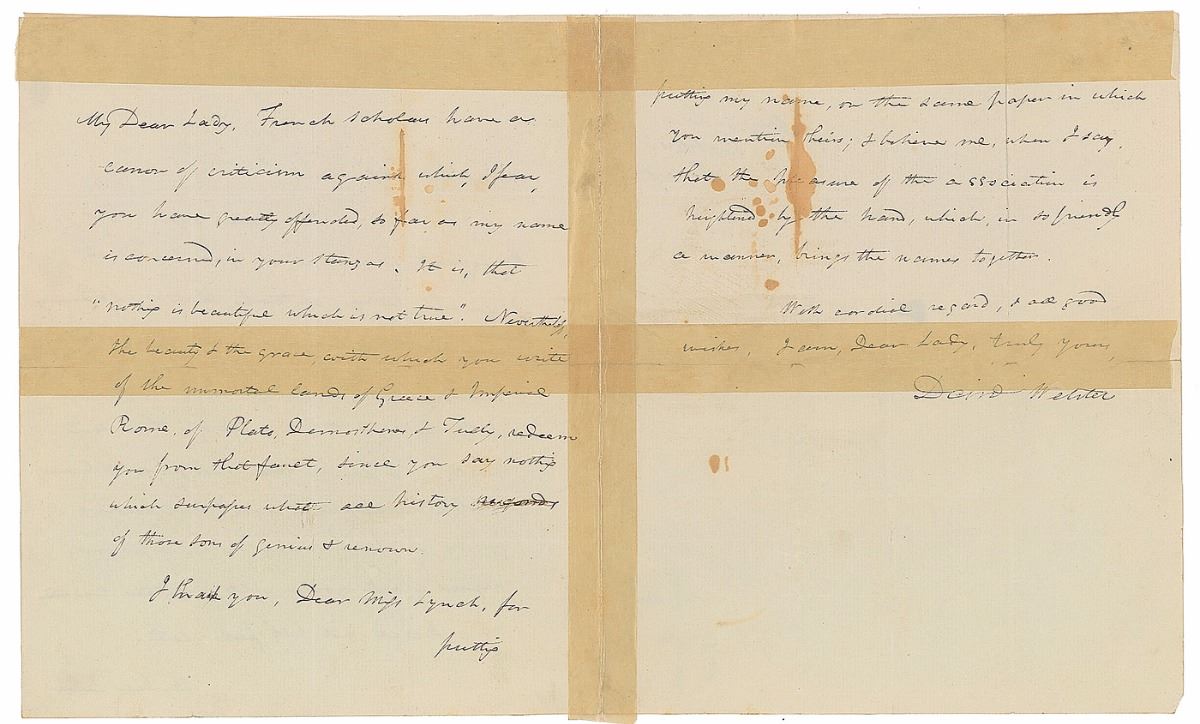 My Dear Lady, French scholars have a
canon of criticism against which, I fear,
you have greatly offended, so far as my name
is concerned, in your stanzas. It is, that
"nothing is beautiful which is not true". Nevertheless,
the beauty & the grace, with which you write
of the immortal lands of Greece & Imperial
Rome, of Plato, Demosthenes, & Tully, redeem
you from that fault, since you say nothing
which surpasses what all history records
of those sons of genius & renown.
I thank you, Dear Miss Lynch, for
putting
putting my name, on the same paper in which
you mention theirs; & believe me, when I say,
that the pleasure of the association is
heightend by the hand, which, in so friendly
a manner, brings the names together.
With cordial regard, & all good
wishes, I am, Dear Lady, truly yours,
Daniel Webster